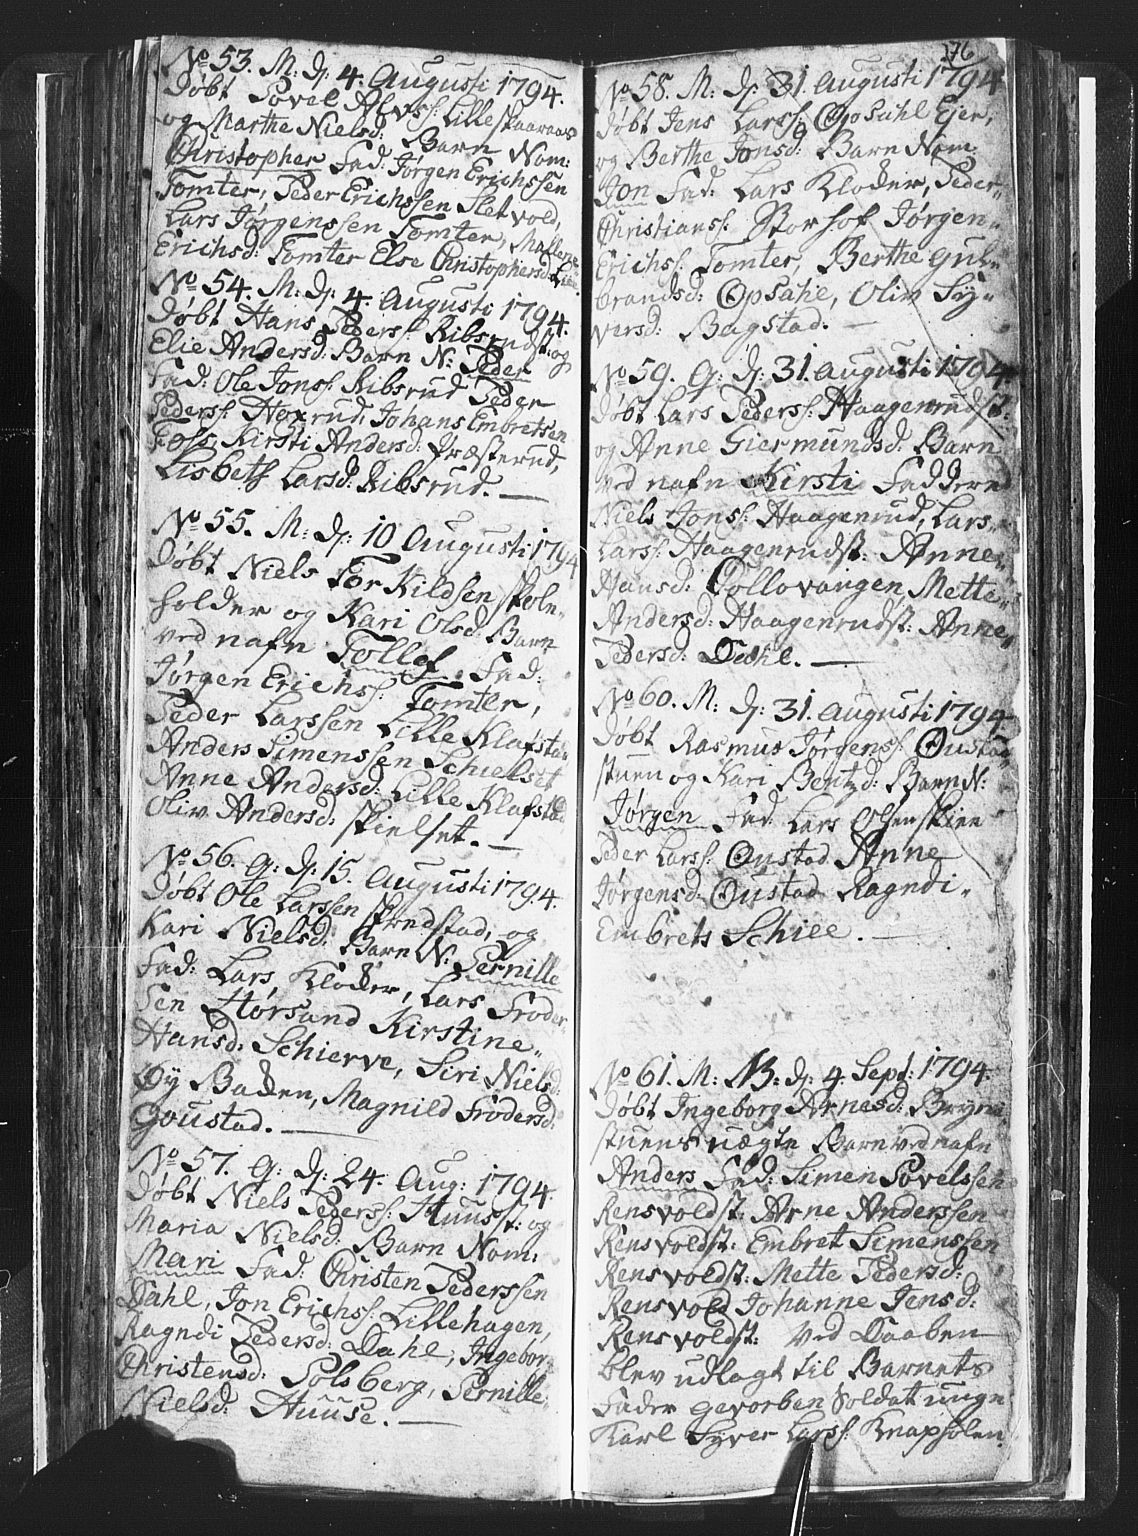 No 53. M. d: 4. Augusti 1794.
døbt Povel Alvss: Lille skaaraas
og Marthe Nielsd: Barn Nom:
Christopher Fad: Jørgen Erichssen
Tomter, Peder Erichssen Sletvold,
Lars Jørgenssen Tomter, Mallene
Erichsd: Tomter Else Christophersd: Lie.
No 54. M. d: 4. Augusti 1794.
døbt Hans Peders: Ribsrudst: og
Elie Andersd: Barn N: Peder
Fad: Ole Jonss: Ribsrud Peder
Pederss: Hoxrud, Johans Embretsen
Fols, Kirsti Andersd: Præsterud,
Lisbeth Larsd: Ribsrud. —
No 55. M: d: 10 Augusti 1794
døbt Niels Torkildsen skole-
holder og Kari Olsd: Barn
ved nafn Tollef Fad:
Jørgen Erichs: Tomter,
Peder Larssen Lille Klafstad
Anders Simenssen Schielset
Anne Andersd: Lille Klafstad
Oliv Andersd: skielset. —
No 56. G: d: 15. Augusti 1794.
døbt Ole Larssen skredstad, og
Kari Nielsd: Barn N: Pernille
Fad: Lars, Klokker, Lars Froder-
sen Hørsand Kirstine
Hansd: Schierve, Siri Nielsd:
By Bakken, Magnild Frodersd:
Goustad. —
No 57. G: d: 24. Aug: 1794.
døbt Niels Pederss: Huusst: og
Maria Nielsd: Barn Nom:
Mari Fad: Christen Pederssen
Dahl, Jon Erichss: Lillehagen,
Ragndi Pedersd: Dahl, Ingebor
Christensd: Solsberg, Pernille
Nielsd: Huuse. —
176
No 58. M: d: 31. Augusti 1794
døbt Jens Larss: Opsahl Ejer,
og Berthe Jonsd: Barn Nom:
Jon Fad: Lars Klokker, Peder
Christianss: Storhof Jørgen
Erichss: Tomter, Berthe Gul-
brandsd: Opsahl, Oliv Sy-
versd: Bagstad. —
No 59. G: d: 31. Augusti 1794.
døbt Lars Pederss: Haagenrudst:
og Anne Giermundsd: Barn
ved nafn Kirsti Faddere
Niels Jonss: Haagenrud, Lars
Larss: Haagenrudst: Anne
Hansd: Tollovangen Mette
Andersd: Haagenrudst: Anne
Pedersd: Dahl. —
No 60. M: d: 31. Augusti 1794
døbt Rasmus Jørgenss: Oustad
stuen og Kari Bentzd: Barn N:
Jørgen Fad: Lars Olsen Skiee
Peder Larss: Oustad Anne
Jørgensd: Oustad Ragndi
Embrets Schiee. —
No 61. M: NB: d: 4. Sept: 1794.
døbt Ingeborg Arnesd: Bryni
stuens uægte Barn ved nafn
Anders Fad: Simen Povelssen
Rensvoldst: Arne Anderssen
Rensvoldst: Embret Simenssen
Rensvoldst: Mette Pedersd:
Rensvold Johanne Jensd:
Rensvoldst: Ved Daaben
blev udlagt til Barnets
Fader gevorben Soldat unge
Karl Syver Larss: Knapholen.